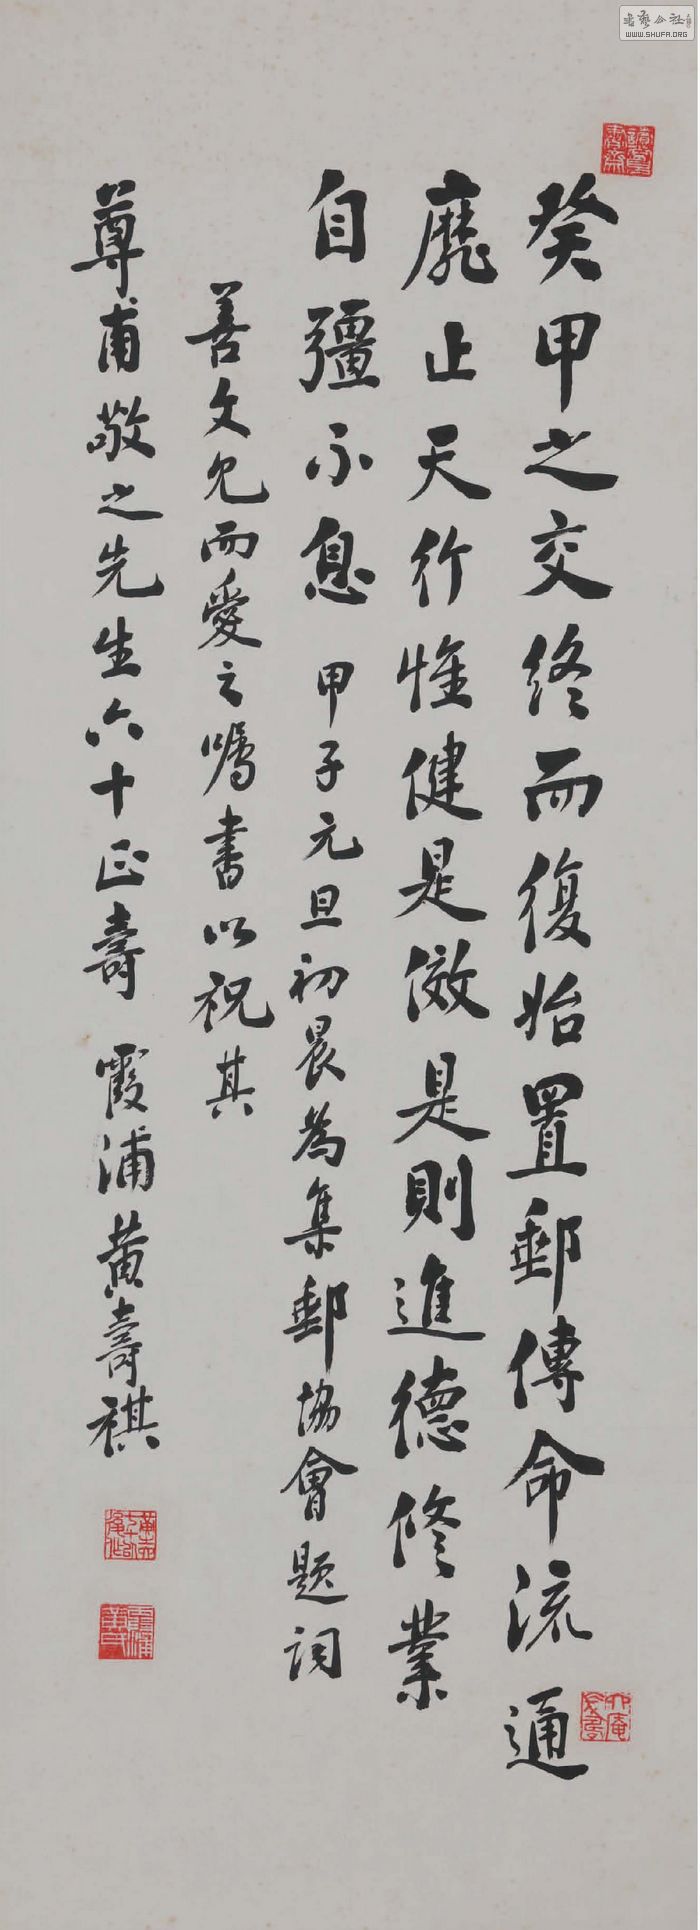 癸甲之交終而復始置郵傳命流通
靡止天行惟健是傚是則進德修業
自彊不息 甲子元旦初晨為集郵協會題詞
善文兄而愛之囑書以祝其
尊甫敬之先生六十正壽 霞浦黄壽祺
WWW.SHUFA.ORG